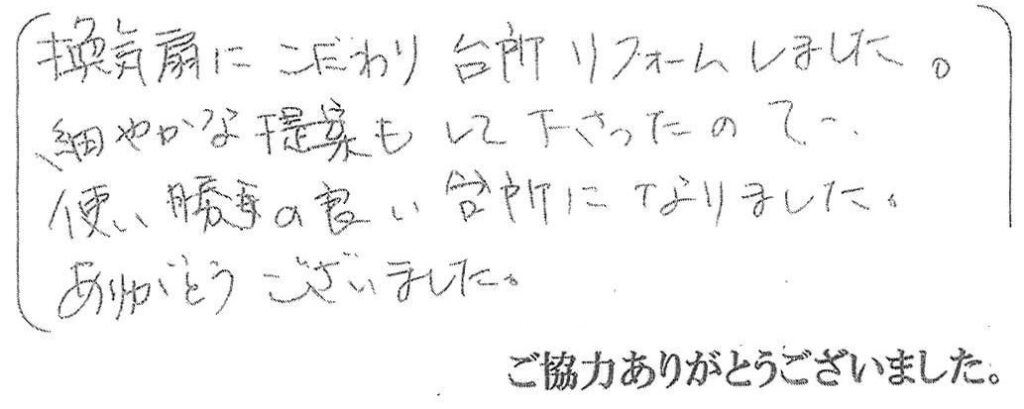 換気扇にこだわり台所リフォームしました。
細やかな提案もして下さったので、
使い勝手の良い台所になりました。
ありがとうございました。
ご協力ありがとうございました。